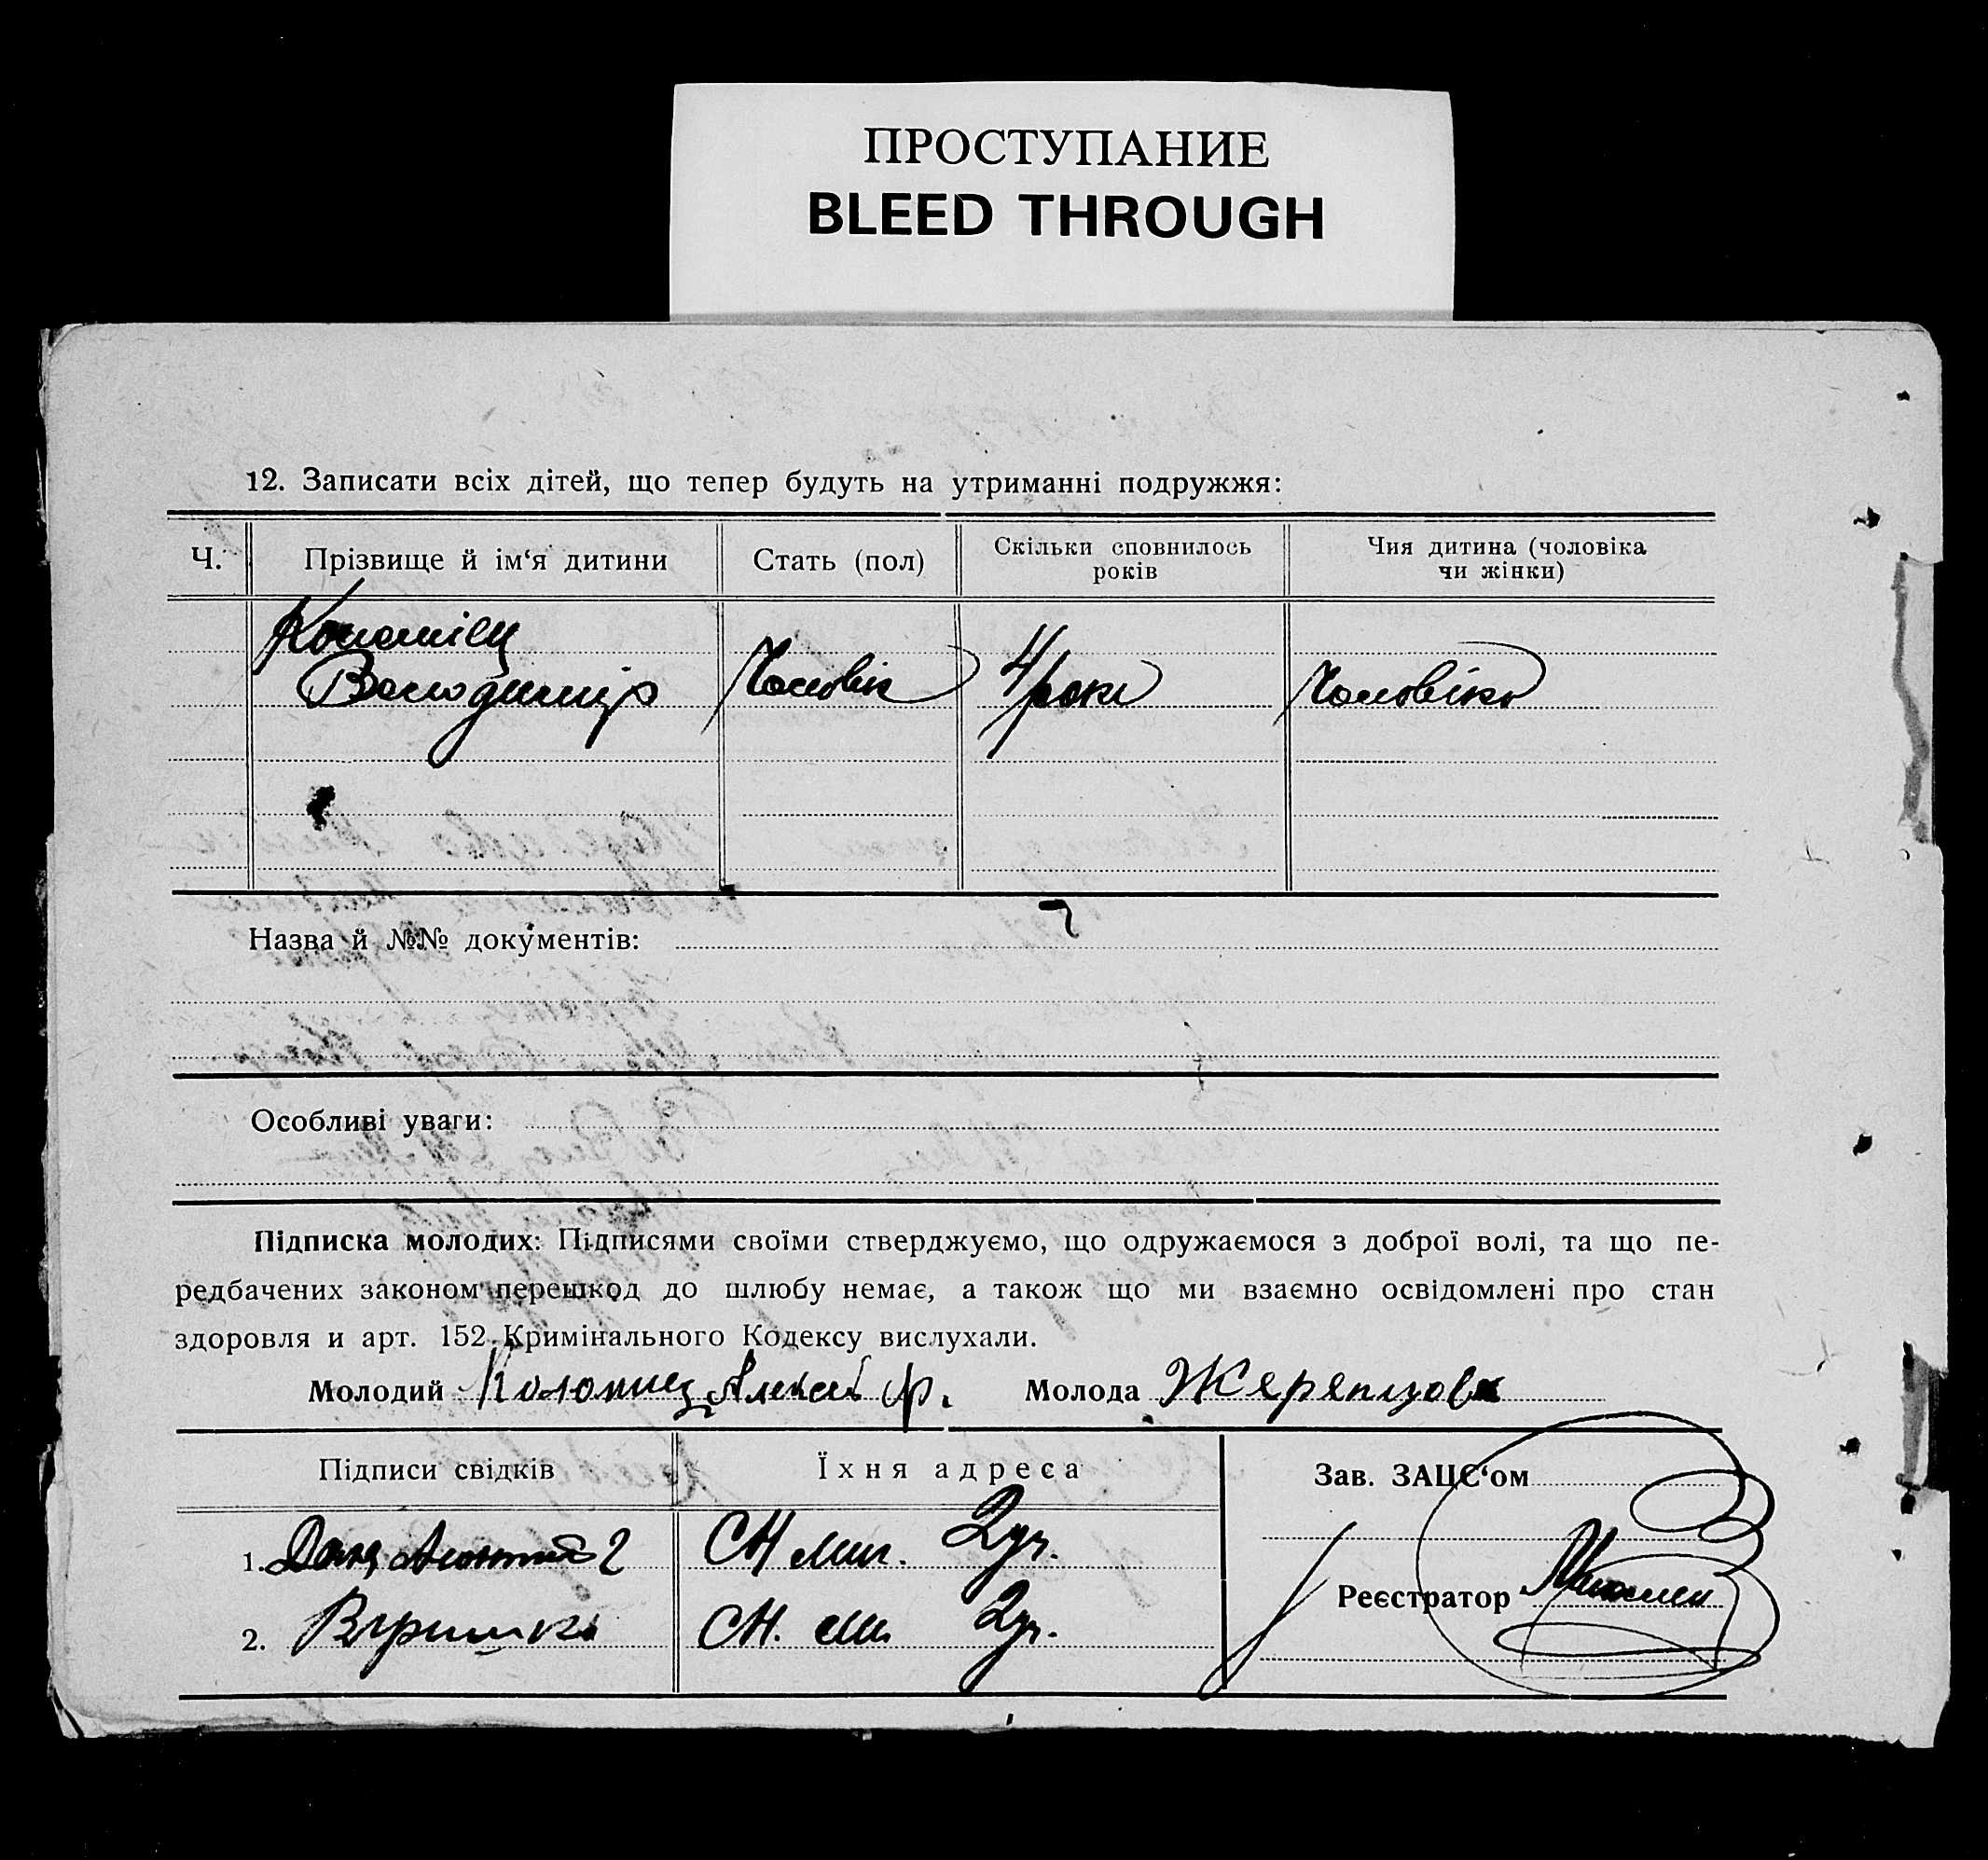 ПРОСТУПАНИЕ
BLEED THROUGH
12. Записати всіх дітей, що тепер будуть на утриманні подружжя:
Ч. Прізвище й ім‘я дитини Стать (пол) Скільки сповнилось років Чия дитина (чоловіка чи жінки)
Коломієц
Володимир Чоловік 4 роки Чоловіка
Назва й №№ документів:
Особливі уваги:
Підписка молодих: Підписями своїми стверджуємо, що одружаємося з доброї волі, та що пе-
редбачених законом перешкод до шлюбу немає, а також що ми взаємно освідомлені про стан
здоровля и арт. 152 Кримінального Кодексу вислухали.
Молодий Коломиец Алексей Ф. Молода Жерепцова
Підписи свідків Їхня адреса Зав. ЗАЦС‘ом
1.
Реєстратор
2.